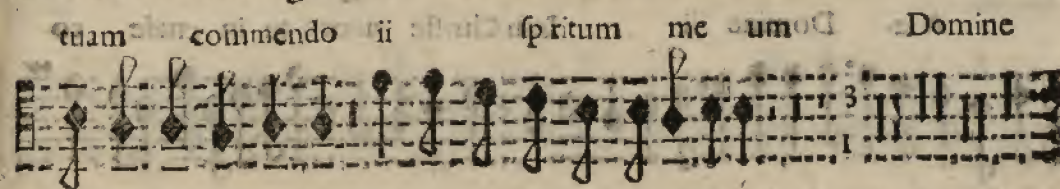 tuam commendo ii spritum me um Domine
3
1